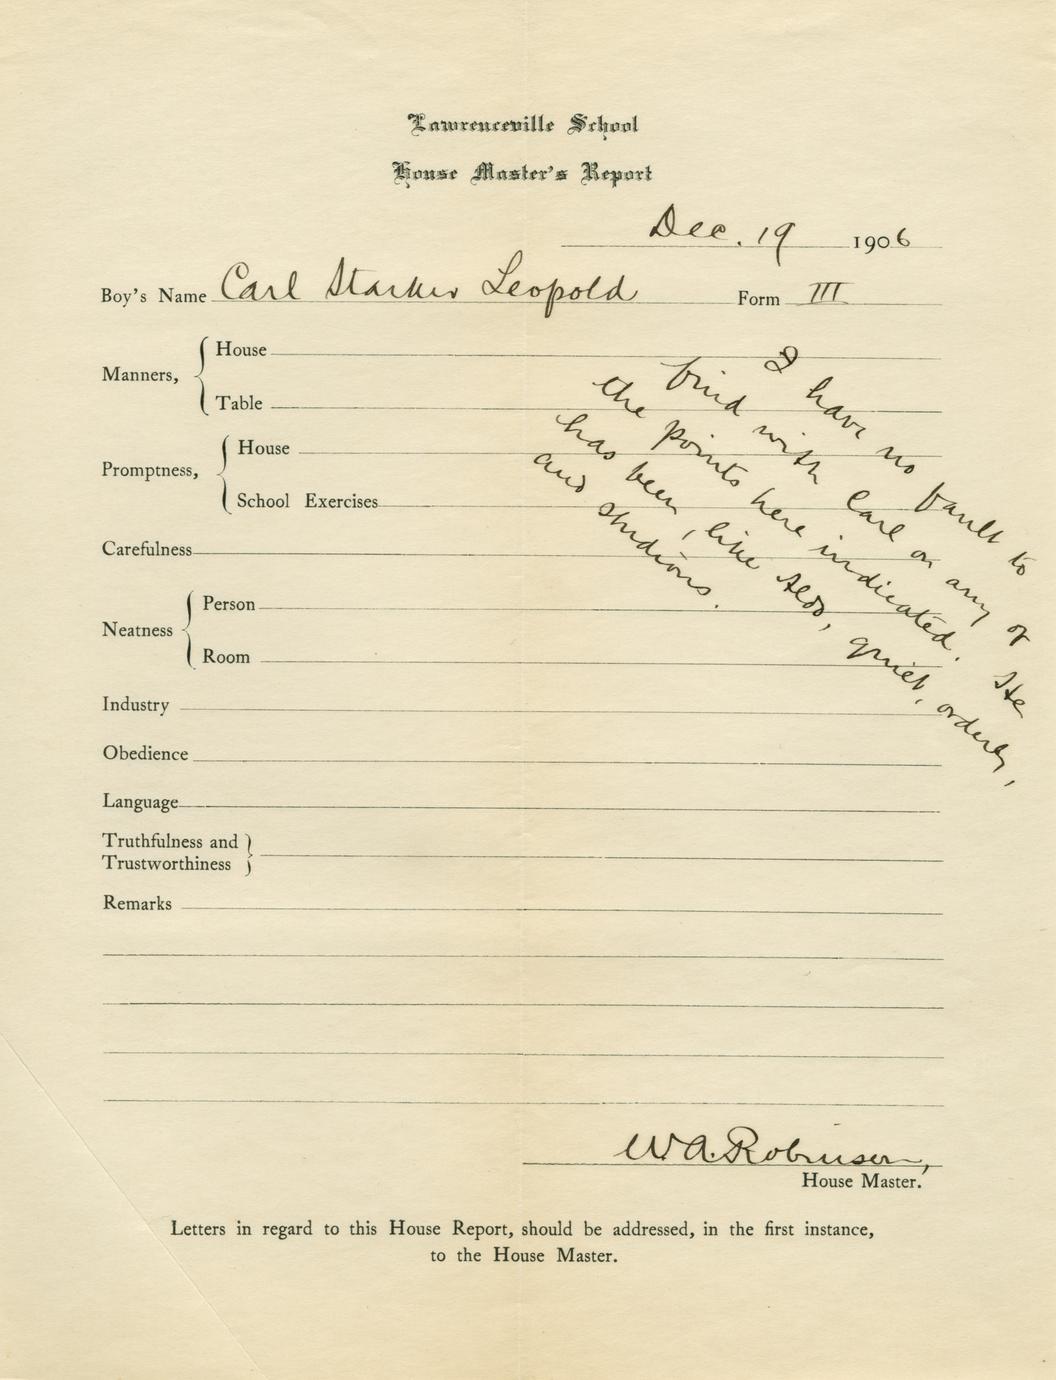 Lawrenceville School
House Master's Report
Dec. 19 1906
Boy's Name Carl Starker Leopold Form III
Manners, House
Table
Promptness, House
School Exercises
Carefulness
Neatness Person
Room
Industry
Obedience
Language
Truthfulness and
Trustworthiness
Remarks
I have no fault to
find with Carl on any of
the points here indicated. He
has been, like Aldo, quiet, orderly,
and studious.
W. A. Robinson,
House Master.
Letters in regard to this House Report, should be addressed, in the first instance,
to the House Master.